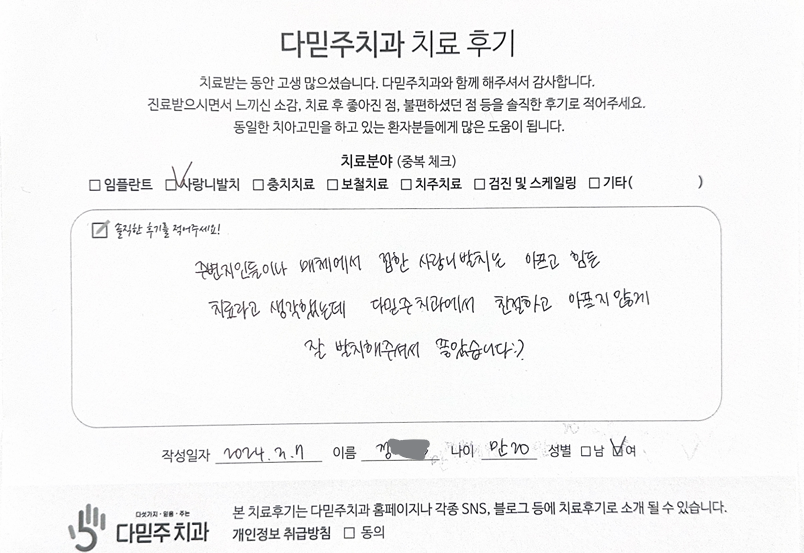 다믿주치과 치료 후기
치료받는 동안 고생 많으셨습니다. 다믿주치과와 함께 해주셔서 감사합니다.
진료받으시면서 느끼신 소감, 치료 후 좋아진 점, 불편하셨던 점 등을 솔직한 후기로 적어주세요.
동일한 치아고민을 하고 있는 환자분들에게 많은 도움이 됩니다.
치료분야 (중복 체크)
□ 임플란트 ☑ 사랑니발치 □ 충치치료 □ 보철치료 □ 치주치료 □ 검진 및 스케일링 □ 기타( )
솔직한 후기를 적어주세요!
주변지인들이나 매체에서 접한 사랑니발치는 아프고 힘든
치료라고 생각했는데 다믿주치과에서 친절하고 아프지 않게
잘 발치해주셔서 좋았습니다:)
작성일자 2024. 2. 7 이름 정 나이 만 20 성별 □남 ☑여
다섯가지·믿음·주는
다믿주치과
본 치료후기는 다믿주치과 홈페이지나 각종 SNS, 블로그 등에 치료후기로 소개 될 수 있습니다.
개인정보 취급방침 □ 동의